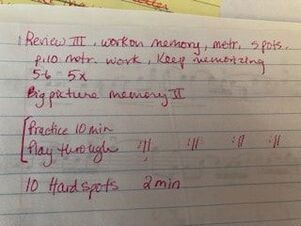 Review III, work on memory, metr. spots.
p.10 metr. work, Keep memorizing
5-6 - 5x
Big picture memory II
[Practice 10 min
Play through :|| :|| :|| :||
10 Hard spots 2 min